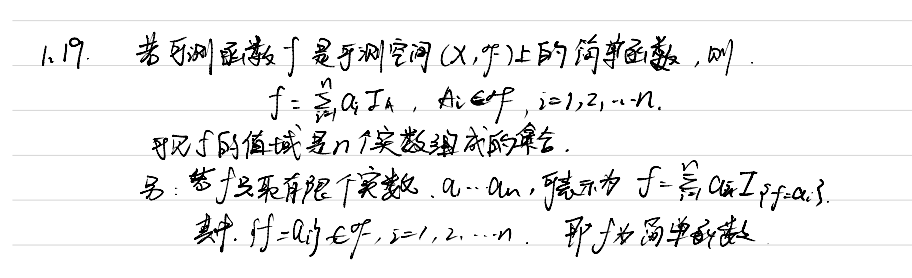 1.19. 若可测函数f是可测空间(X,ℱ)上的简单函数,则.
f=∑_{i=1}^{n} a_i I_A , A_i∈ℱ, i=1,2,···n.
可见f的值域是n个实数组成的集合.
另:若f只取有限个实数.a_1···a_n,可表示为 f=∑_{i=1}^{n} a_i I_{{f=a_i}}.
其中.{f=a_i}∈ℱ,i=1,2,···n. 即f为简单函数